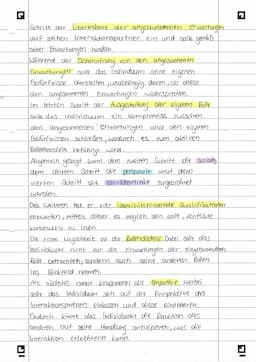 Schritt der Übernahme der angenommenen Erwartungen
auf seinen Interaktionspartner ein und solle gemäß
seiner Erwartungen handeln.
Während der Demonstrierung von den angenommenen
Erwartungen solle das Individuum seine eigenen
Bedürfnisse darstellen, unabhängig davon, ob diese
den angenommenen Erwartungen widersprechen.
Im letzten Schritt der Ausgestaltung der eigenen Rolle
solle das Individuum ein Kompromiss zwischen
den angenommenen Erwartungen und den eigenen
Bedürfnissen schließen, wodurch es zum aktiven
Rollenhandeln befähigt wird.
Allgemein gesagt kann den zweiten Schritt die soziale,
dem dritten Schritt die personale und dem
vierten Schritt die Ich-Identität zugeordnet
werden.
Des Weiteren hat er vier identitätsfördernde Qualifikationen
entworfen, mittels dieser es möglich sein soll, Konflikte
konstruktiv zu lösen.
Die erste Möglichkeit ist die Rollendistanz. Dabei solle das
Individuum nicht nur die Erwartungen der eingenommenen
Rolle betrachten, sondern auch seine anderen Rollen
ins Blickfeld nehmen.
Als nächstes nannte Krappmann die Empathie. Hierbei
solle das Individuum sich auf die Perspektive des
Interaktionspartners einlassen und diese einnehmen.
Dadurch könne das Individuum die Reaktion des
anderen auf seine Handlung antizipieren, was die
Interaktion erleichtern kann.